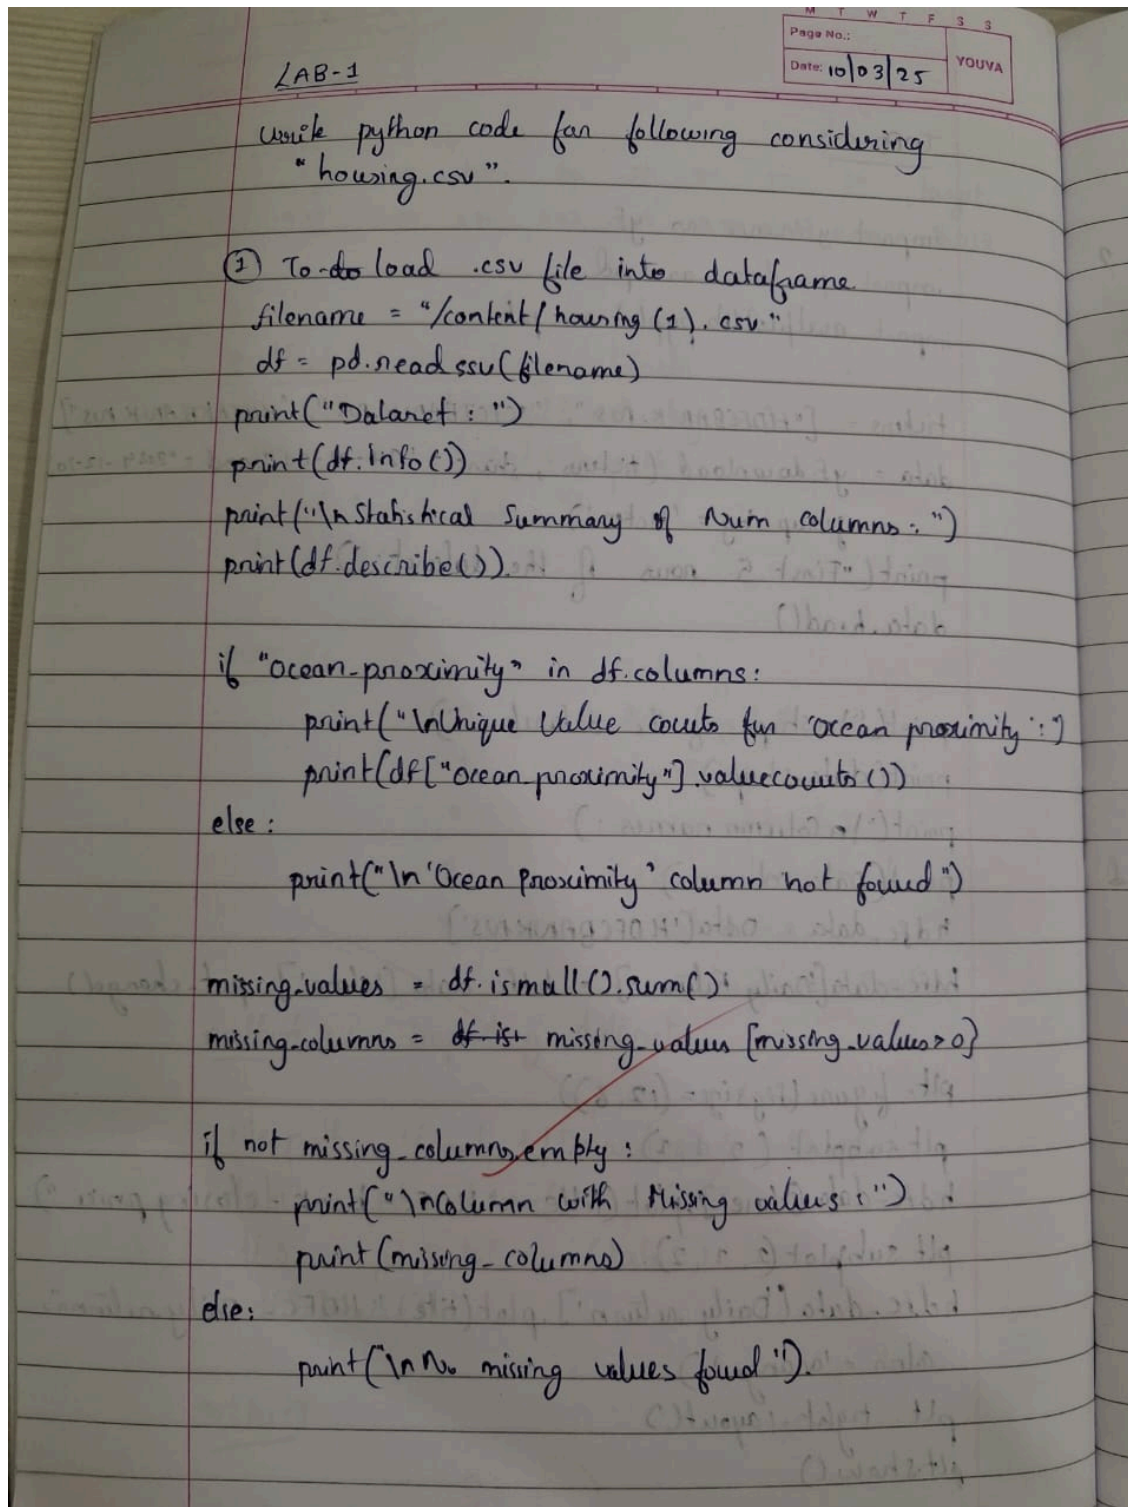 M T W T F S S
Page No.:
Date: 10/03/25
YOUVA
LAB-1
Write python code for following considering
"housing.csv".
① To do load .csv file into dataframe
filename = "/content/housing(1).csv"
df = pd.read ssv(filename)
print("Dataset : ")
print(df.info())
print("\n Statistical Summary of Num columns : ")
print(df.describe()).
if "ocean-proximity" in df.columns:
print("\nUnique Value couts for 'ocean proximity':")
print(df["ocean proximity"].valuecounts())
else :
print("\n'Ocean Proximity' column not found")
missing-values = df.isnull().sum()
missing-columns = df ist missing_values [missing_values>0]
if not missing_columns.empty :
print("\nColumn with Missing values : ")
print(missing_columns)
else:
print("\n No missing values found").